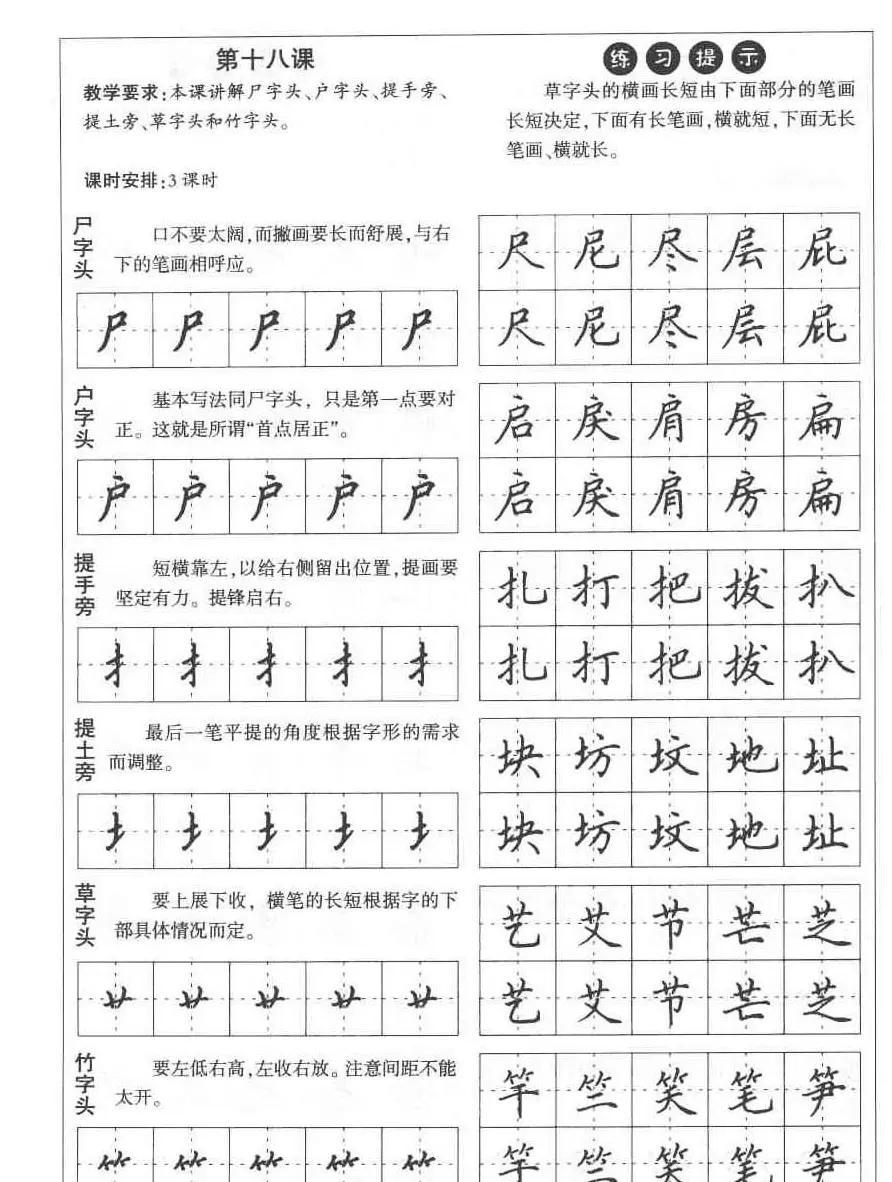 第十八课
教学要求:本课讲解尸字头、户字头、提手旁、
提土旁、草字头和竹字头。
课时安排:3课时
练习提示
草字头的横画长短由下面部分的笔画
长短决定,下面有长笔画,横就短,下面无长
笔画、横就长。
尸字头
口不要太阔,而撇画要长而舒展,与右
下的笔画相呼应。
尸尸尸尸尸
尺尼尽层屁
尺尼尽层屁
户字头
基本写法同尸字头，只是第一点要对
正。这就是所谓“首点居正”。
户户户户户
启戾肩房扁
启戾肩房扁
提手旁
短横靠左,以给右侧留出位置,提画要
坚定有力。提锋启右。
扌扌扌扌扌
扎打把拔扒
扎打把拔扒
提土旁
最后一笔平提的角度根据字形的需求
而调整。
土土土土土
块坊坟地址
块坊坟地址
草字头
要上展下收，横笔的长短根据字的下
部具体情况而定。
艹艹艹艹艹
艺艾节芒芝
艺艾节芒芝
竹字头
要左低右高,左收右放。注意间距不能
太开。
⺮⺮⺮⺮⺮
竿竺笑笔笋
竿竺笑笔笋